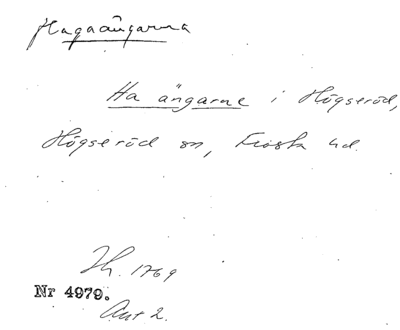 Hagaängarna
Ha ängarne i Högseröd,
Högseröd sn, Frosta hd.
Th. 1769
Nr 4979.
Akt 2.